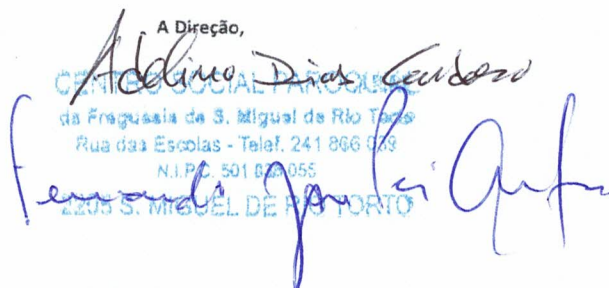 A Direção,
Adelino Dias Cardoso
CENTRO SOCIAL PAROQUIAL
da Freguesia de S. Miguel de Rio Torto
Rua das Escolas - Telef. 241 866 039
N.I.P.C. 501 055
Fernando
2205 S. MIGUEL DE RIO TORTO